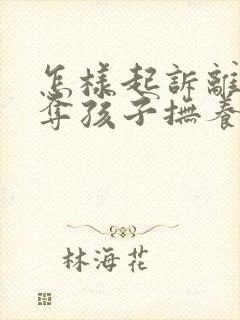 怎樣起訴離
奪孩子撫養
林海花